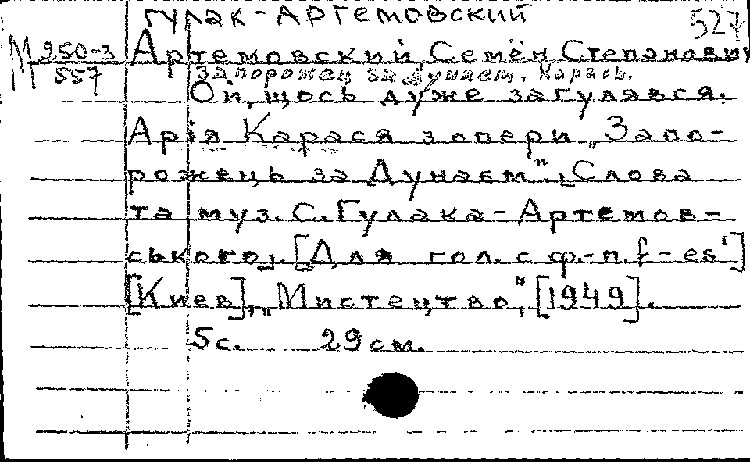 Гулак-Артемовский
527
М 250-3
557
Артемовский, Семён Степанович
Запорожец за Дунаем, Карась.
Ой, щось дуже загулявся.
Арія Карася з опери „Запо-
рожець за Дунаєм". Слова
та муз. С. Гулака-Артемов-
ського. [Для гол. с ф.-п. f-es']
[Киев], „Мистецтво", [1949].
5с. 29см.